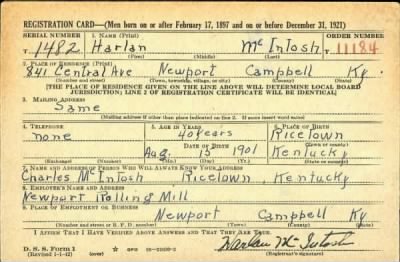 REGISTRATION CARD—(Men born on or after February 17, 1897 and on or before December 31, 1921)
SERIAL NUMBER 1. NAME (Print) ORDER NUMBER
T 1482 Harlan McIntosh T 11184
(First) (Middle) (Last)
2. PLACE OF RESIDENCE (Print)
841 Central Ave Newport Campbell Ky
(Number and street) (Town, township, village, or city) (County) (State)
[THE PLACE OF RESIDENCE GIVEN ON THE LINE ABOVE WILL DETERMINE LOCAL BOARD
JURISDICTION; LINE 2 OF REGISTRATION CERTIFICATE WILL BE IDENTICAL]
3. MAILING ADDRESS
Same
[Mailing address if other than place indicated on line 2. If same insert word same]
4. TELEPHONE 5. AGE IN YEARS 6. PLACE OF BIRTH
none 40 years Ricetown
DATE OF BIRTH (Town or county)
Aug. 15 1901 Kentucky
(Exchange) (Number) (Mo.) (Day) (Yr.) (State or country)
7. NAME AND ADDRESS OF PERSON WHO WILL ALWAYS KNOW YOUR ADDRESS
Charles McIntosh Ricetown, Kentucky
8. EMPLOYER'S NAME AND ADDRESS
Newport Rolling Mill
9. PLACE OF EMPLOYMENT OR BUSINESS
Newport Campbell Ky
(Number and street or R. F. D. number) (Town) (County) (State)
I AFFIRM THAT I HAVE VERIFIED ABOVE ANSWERS AND THAT THEY ARE TRUE.
D. S. S. Form 1
(Revised 1-1-42) (over) Harlan McIntosh
(Registrant's signature)